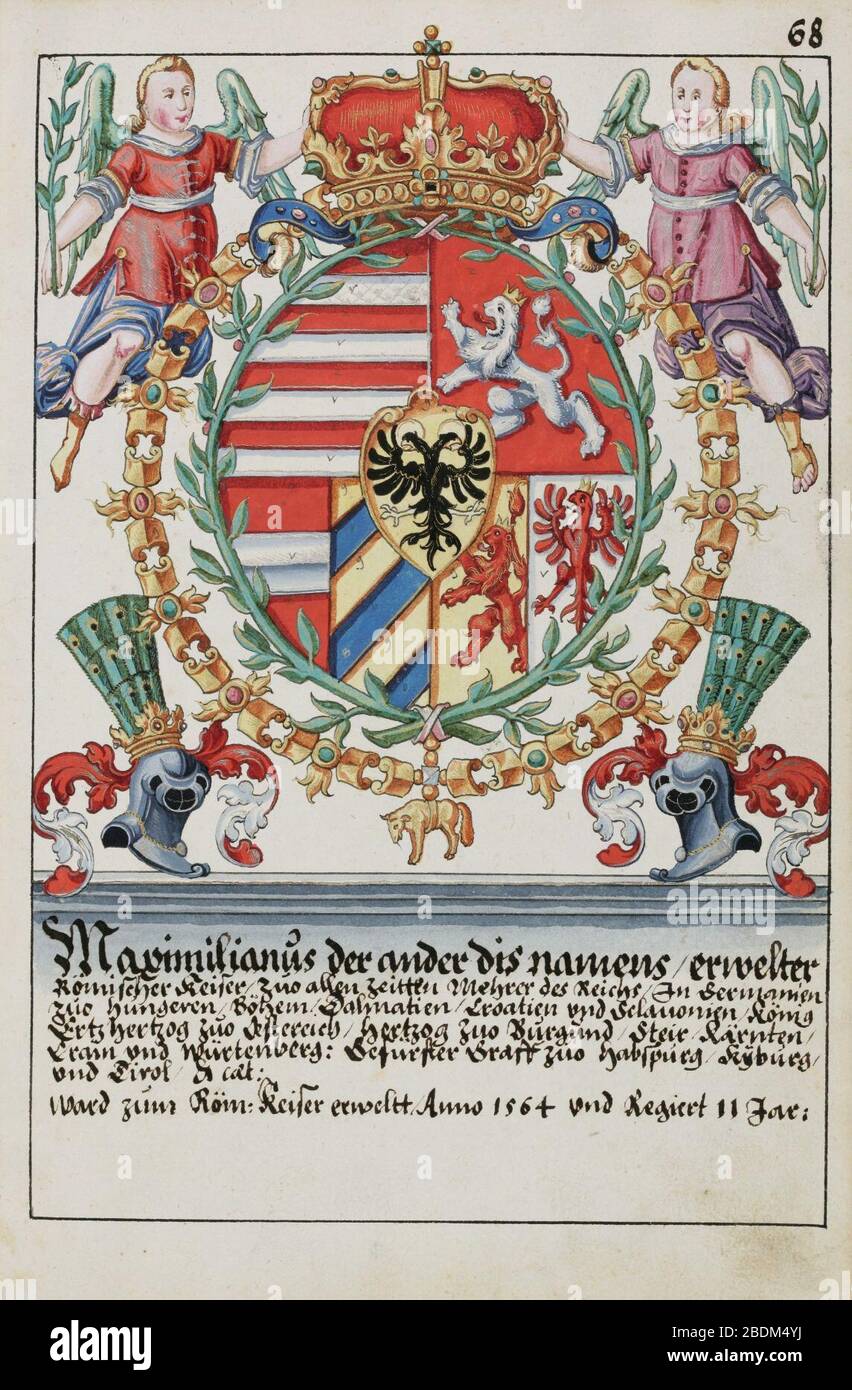 68
Maximilianus der ander dis namens / erwelter
Römischer Keiser / zuo allen zeitten Mehrer des Reichs / In Germanien
zuo Hungeren / Böhem / Dalmatien / Croatien und Sclavonien / König
Ertzhertzog zuo Osstereich / Hertzog zuo Burgund / Steir / Kärnten /
Crain und Würtenberg: Gefürster Graff zuo Habspurg / Kyburg /
und Tirol /
Ward zum Röm: Keiser erweltt Anno 1564 und Regiert 11 Jar:
alamy
Image ID: 2BDM4YJ
www.alamy.com